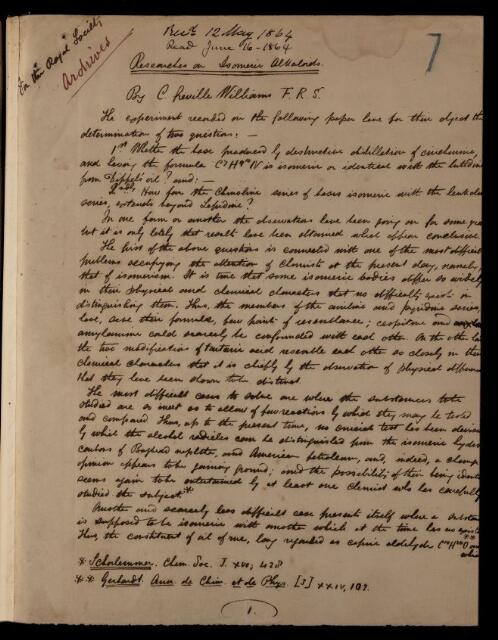 For the Royal Society
Archives
Rec'd. 12 May 1864
Read June 16 - 1864
7
Researches on Isomeric Alkaloids.
By C. Greville Williams F.R.S.
The experiment recorded in the following paper have for their object the
determination of two questions: —
1st Whether the base produced by destructive distillation of cinchonine,
and having the formula is isomeric or identical with the lutidine
from Dippel's oil? and: —
2nd How far the Chinoline series of bases isomeric with the
series, extends beyond Lepidine?
In one form or another the observations have been going on for some years
but it is only lately that result have been obtained which appear conclusive.
The first of the above questions is connected with one of the most difficult
problems occupying the attention of Chemists at the present day, namely,
that of isomerism. It is true that some isomeric bodies differ so widely
in their physical and chemical characters that no difficulty exists in
distinguishing them. Thus, the members of the aniline and pyridine series,
have, save their formulae, few points of resemblance; cespitine and
amylamine could scarcely be confounded with each other. On the other hand
the two modifications of tartaric acid resemble each other so closely in their
chemical characters that it is chiefly by the observation of physical differences
that they have been shown to be distinct.
The most difficult cases to solve are where the substances to be
studied are so inert as to allow of few reactions by which they may be tested
and compared. Thus, up to the present time, no crucial test has been devised
by which the alcohol radicles can be distinguished from the isomeric hydro-
carbons of Boghead naphtha, and American petroleum, and, indeed, a change of
opinion appears to be gaining ground; and the possibility of their being identical
seems again to be entertained by at least one chemist who has carefully
studied the subject.*
Another and scarcely less difficult case present itself where a substance
is supposed to be isomeric with another which at the time has no existence
Thus the constituent of oil of rue, long regarded as capric aldehyde
* Schorlemmer. Chem. Soc. J. xvi, 428
** Gerhardt. Ann. de Chim. et de Phys. [3] xxiv, 103.
1.